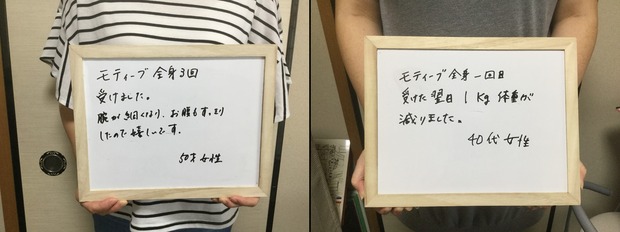 モティーブ 全身3回
受けました。
腕が細くなり、お腹もすっきり
したので嬉しいです。
50才 女性
モティーブ全身一回目
受けた翌日 1Kg 体重が
減りました。
40代 女性